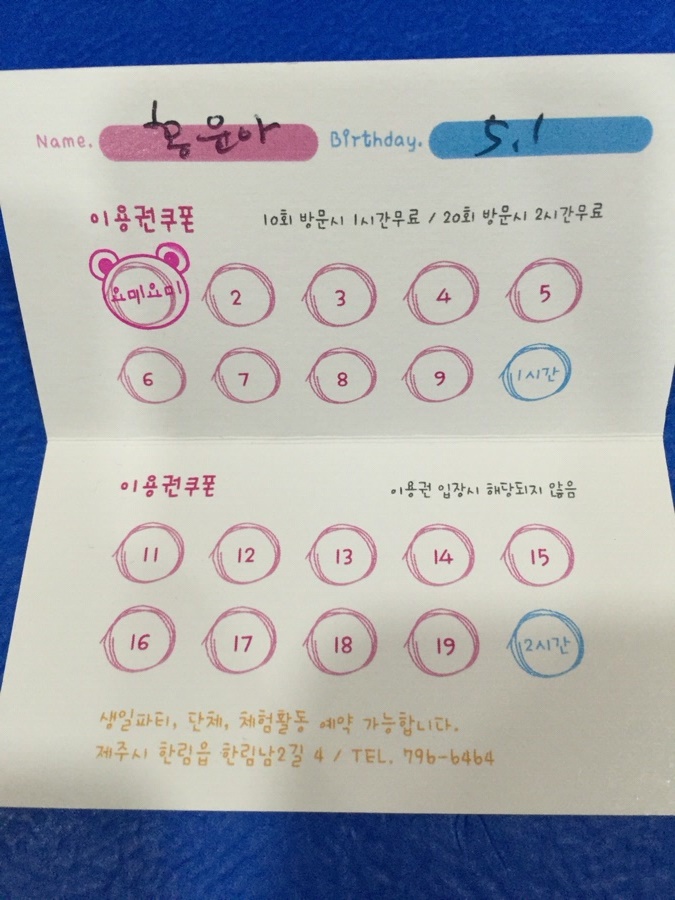 Name. 홍윤아 Birthday. 5.1
이용권쿠폰 10회 방문시 1시간무료 / 20회 방문시 2시간무료
요미요미 2 3 4 5
6 7 8 9 1시간
이용권쿠폰 이용권 입장시 해당되지 않음
11 12 13 14 15
16 17 18 19 2시간
생일파티, 단체, 체험활동 예약 가능합니다.
제주시 한림읍 한림남2길 4 / TEL. 796-6464